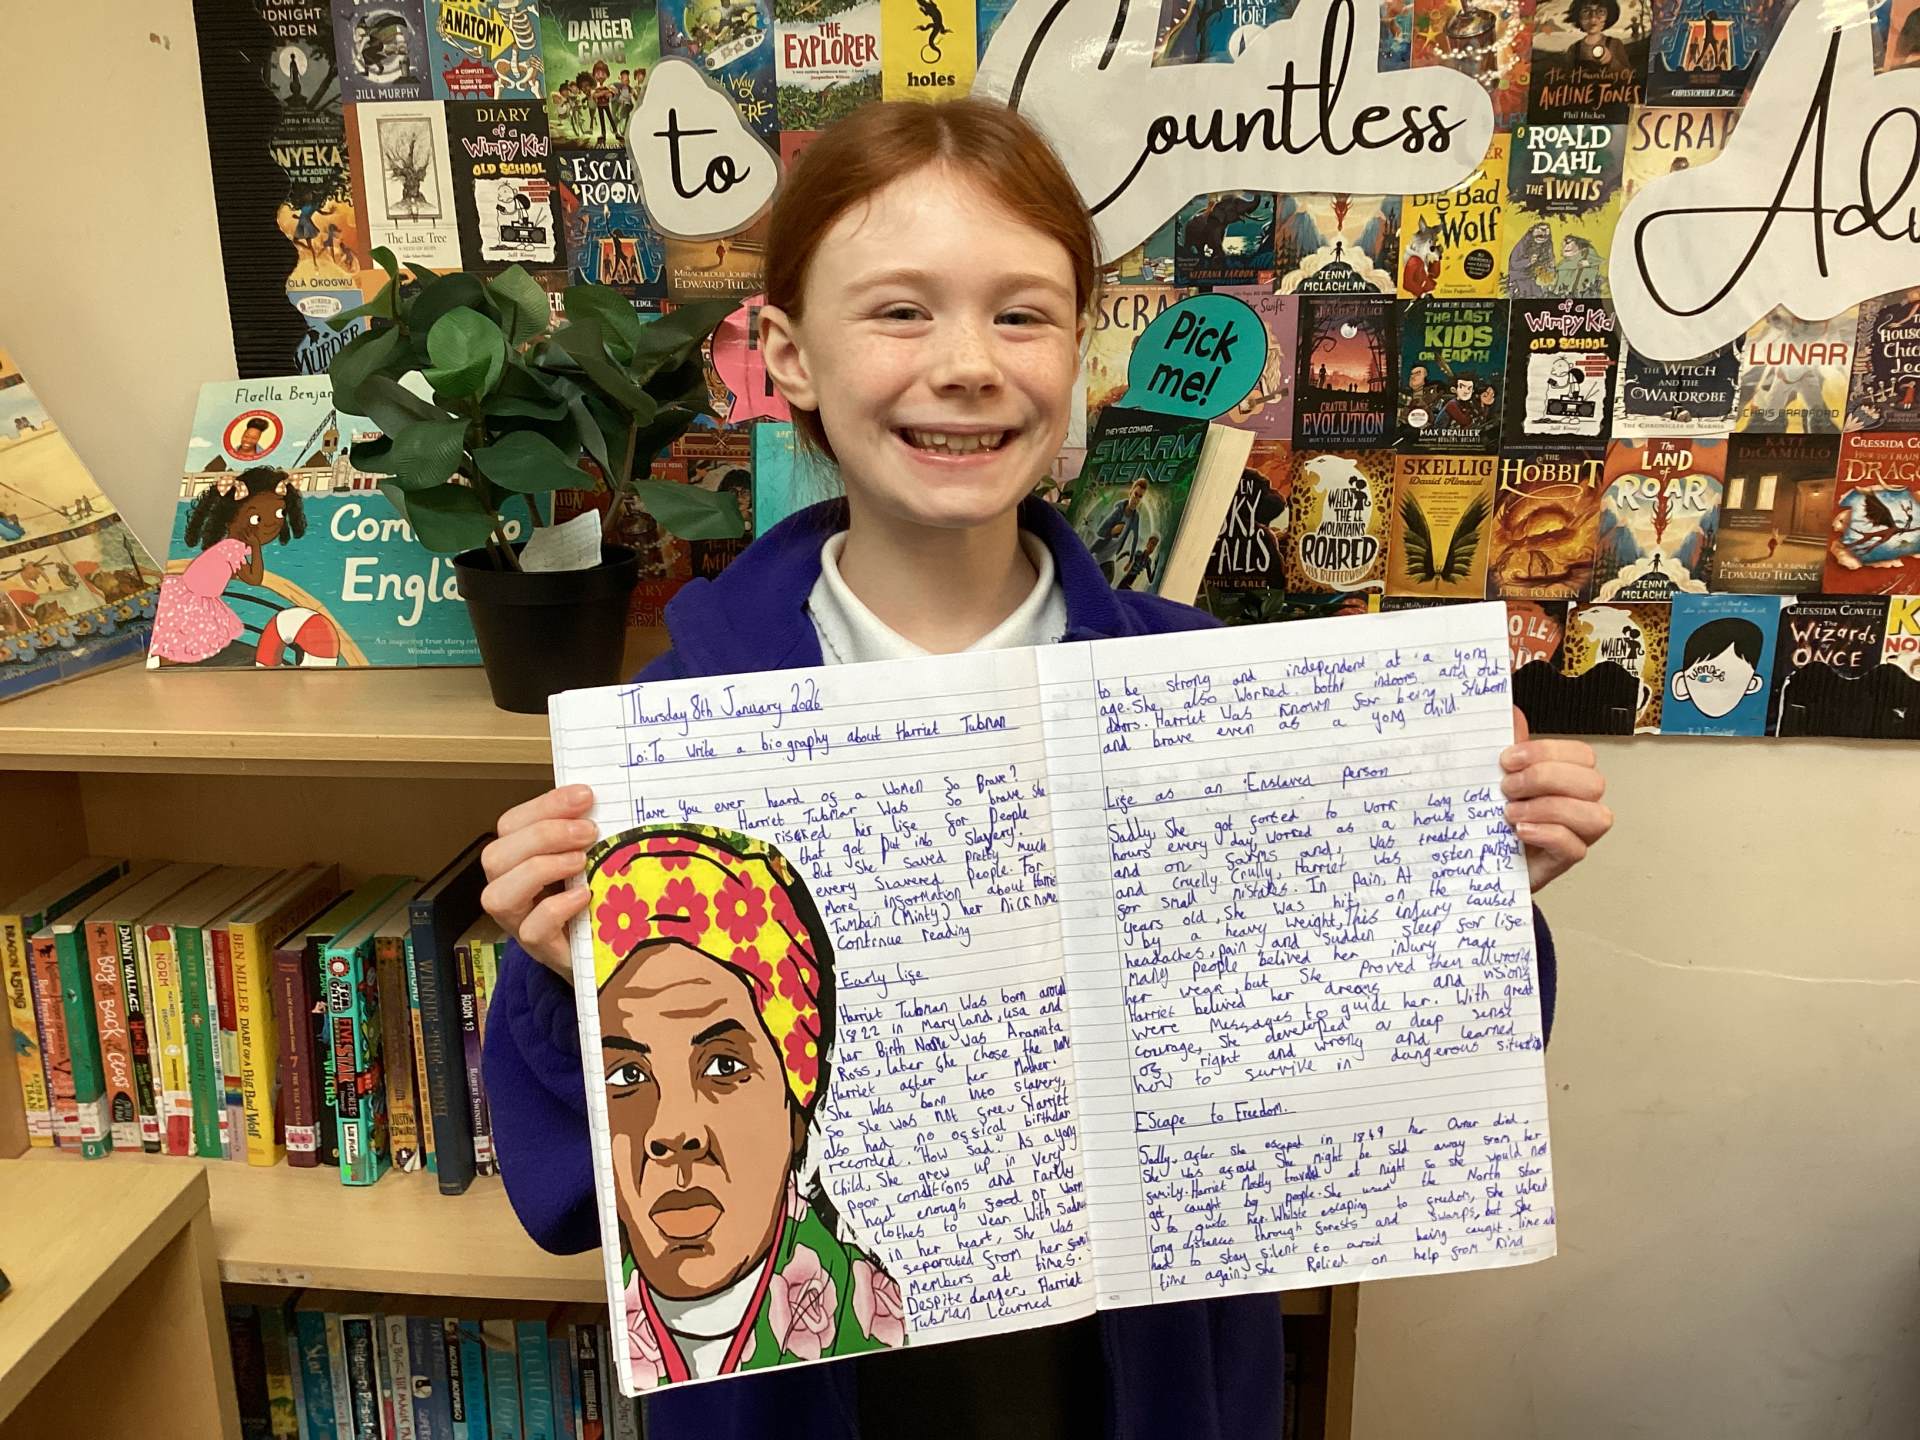 Thursday 8th January 2026
Lo: To write a biography about Harriet Tubman
Have you ever heard of a Women So Brave?
Harriet Tubman Was So brave She
risked her life for People
that got Put into Slavery.
But She Saved Pretty much
every Slavered People. For
More information about Harriet
Tumban (Minty) her nickname
Continue reading
Early life
Harriet Tubman Was born around
1822 in Maryland, usa and
her Birth Name Was Araminta
Ross, later She chose the name
Harriet after her Mother.
She Was born into slavery,
So She was not free. Harriet
also had no official birthday
recorded. "How Sad." As a yong
Child, She grew up in Very
poor conditions and rarely
had enough food or warm
clothes to wear. With Sadness
in her heart, She Was
separated from her family
Members at times.
Despite danger, Harriet
Tubman Learned
to be strong and independent at a yong
age. She also Worked both indoors and out
doors. Harriet Was known for being Stuborn
and brave even as a yong child.
Life as an Enslaved person
Sadly, She got forced to work Long Cold
hours every day, worked as a house Servant
and on farms and, Was treated
and cruelly. Crully, Harriet Was often
for small mistakes. In pain, At around 12
years old, She Was hit on the head
by a heavy weight, this injury caused
headaches, pain and sudden sleep for life.
Many people belived her injury Made
her weak, but She Proved them all wrong.
Harriet belived her dreams and visions
were Messages to guide her. With great
courage, She developed a deep sense
of right and wrong and learned
how to survive in dangerous situations
Escape to Freedom.
Sadly, after she escaped in 1849 her Owner died,
She was afraid She Might be Sold away from her
family. Harriet Mostly traveld at night so she would not
get caught by people. She used the North Star
to guide her. Whilst escaping to freedom, She Walked
long distances through forests and swamps, but She
had to stay silent to avoid being caught. Time and
time again, She Relied on help from kind
to
Countless
Pick
me!
JILL MURPHY
ANATOMY
THE
DANGER
GANG
THE
EXPLORER
holes
DIARY
of a
Wimpy Kid
OLD SCHOOL
Jeff Kinney
The Last Tree
ESCAPE
ROOM
EDWARD TULANE
Floella Benjamin
Come to
England
THEY'RE COMING...
SWARM
RISING
The Haunting Of
AVELINE JONES
Phil Hickes
CHRISTOPHER EDGE
ROALD
DAHL
THE TWITS
SCRAP
Big Bad
Wolf
JENNY
MCLACHLAN
CRATER LAKE
EVOLUTION
THE LAST
KIDS
ON EARTH
MAX BRALLIER
Wimpy Kid
OLD SCHOOL
THE WITCH
AND THE
WARDROBE
LUNAR
CHRIS BRADFORD
WHEN THE
SKY
FALLS
PHIL EARLE
WHEN
THE
MOUNTAINS
ROARED
SKELLIG
David Almond
THE
HOBBIT
J.R.R. TOLKIEN
The
LAND
of
ROAR
JENNY
MCLACHLAN
KATE
DiCAMILLO
EDWARD TULANE
CRESSIDA COWELL
wonder
CRESSIDA COWELL
The
Wizards
of
ONCE
DRAGON RISING
The Boy at the Back of the Class
DANNY WALLACE
NORM
BEN MILLER DIARY OF A BIG BAD WOLF
FIVE STAR STORIES
WINNIE-THE-POOH
ROOM 13
ROBERT SWINDELLS
MICHAEL MORPURGO